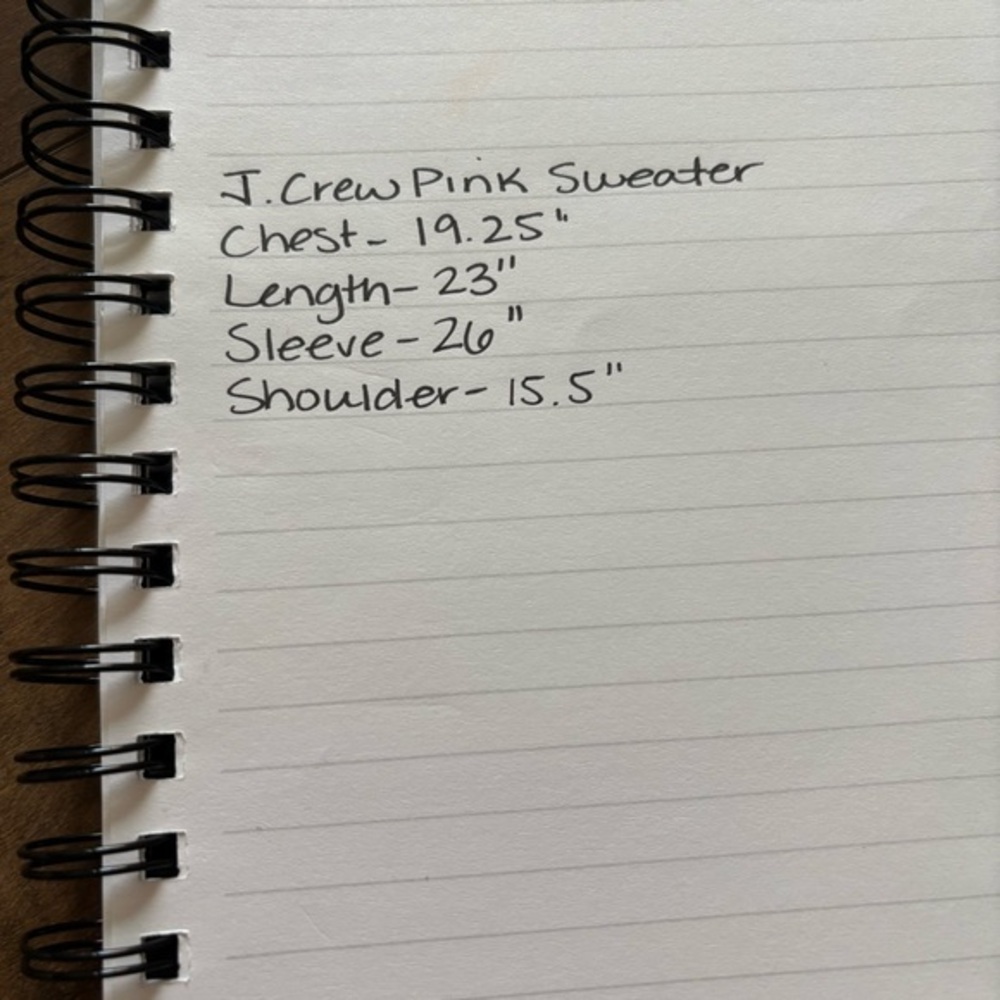 J.Crew Pink Sweater
Chest- 19.25"
Length- 23"
Sleeve- 26"
Shoulder- 15.5"